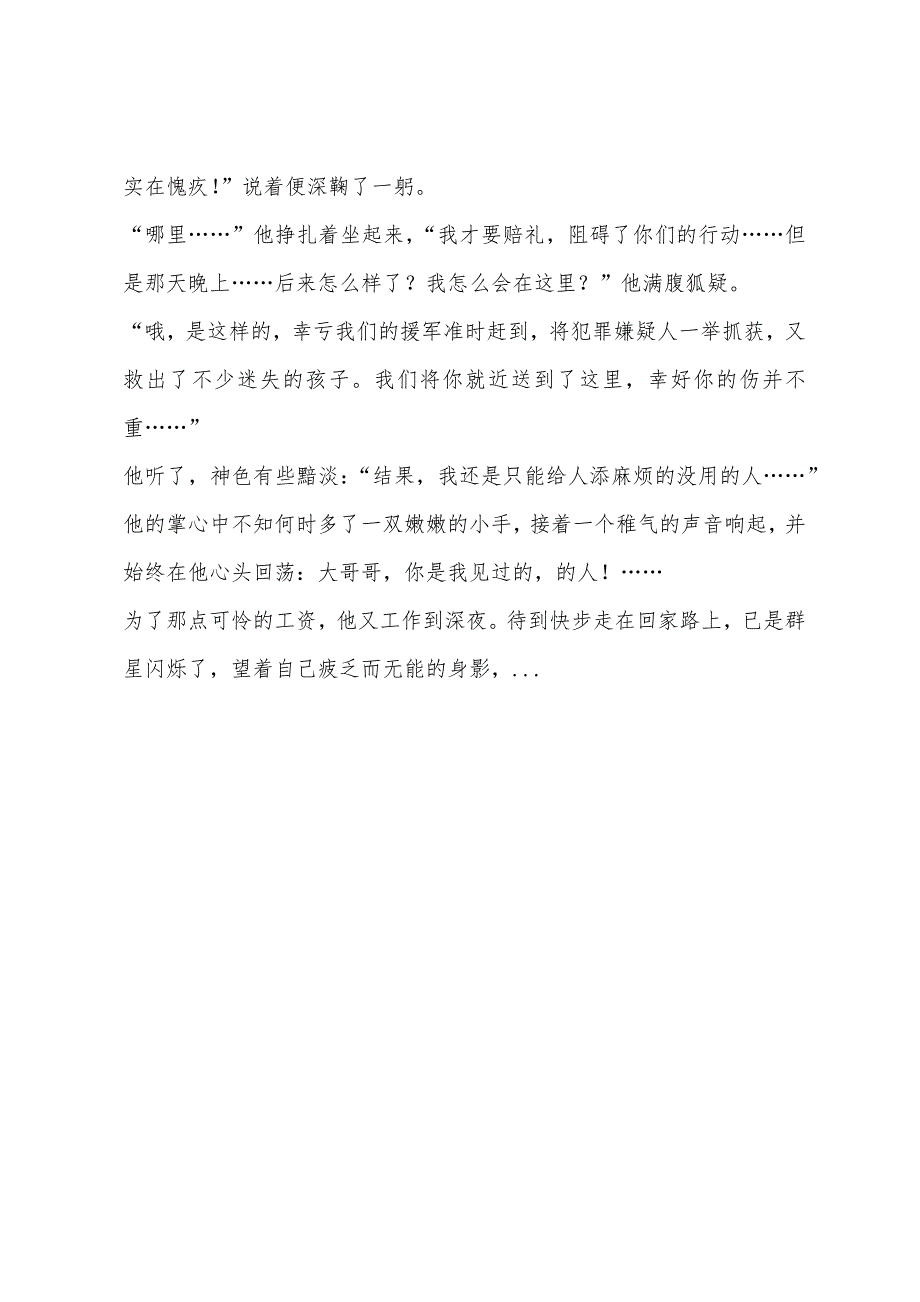 实在愧疚！”说着便深鞠了一躬。
“哪里……”他挣扎着坐起来，“我才要赔礼，阻碍了你们的行动……但
是那天晚上……后来怎么样了？我怎么会在这里？”他满腹狐疑。
“哦，是这样的，幸亏我们的援军准时赶到，将犯罪嫌疑人一举抓获，又
救出了不少迷失的孩子。我们将你就近送到了这里，幸好你的伤并不
重……”
他听了，神色有些黯淡：“结果，我还是只能给人添麻烦的没用的人……”
他的掌心中不知何时多了一双嫩嫩的小手，接着一个稚气的声音响起，并
始终在他心头回荡：大哥哥，你是我见过的，的人！……
为了那点可怜的工资，他又工作到深夜。待到快步走在回家路上，已是群
星闪烁了，望着自己疲乏而无能的身影，...